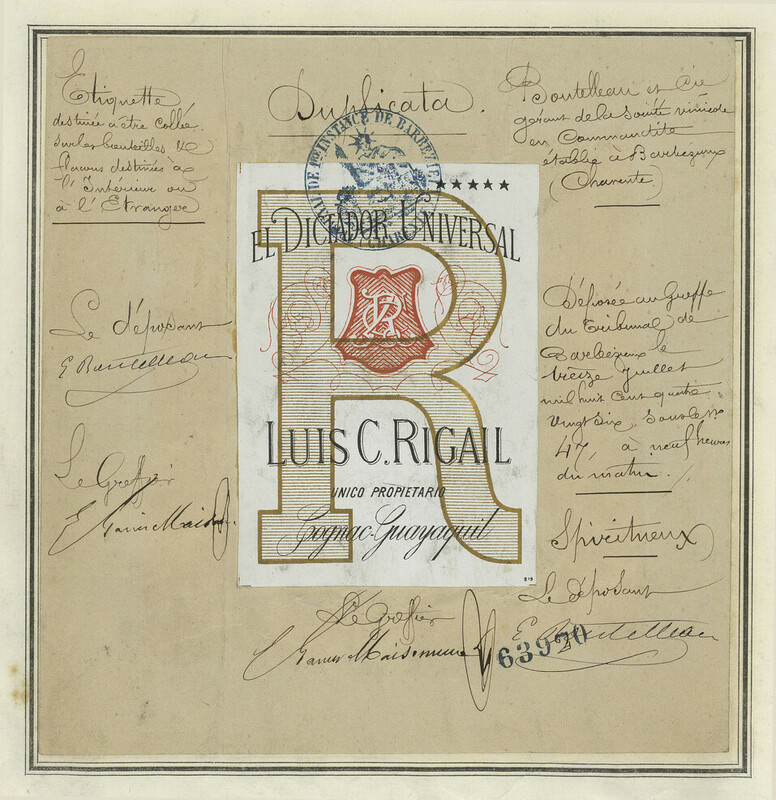 Etiquette
destinée à être collée
sur les bouteilles &
flacons destinés à
l'Intérieur ou
à l'Etranger
Duplicata.
Boutelleau et Cie
gérant de la Société vinicole
en Commandite
établie à Barbezieux
(Charente)
TRIBUNAL DE 1ère INSTANCE DE BARBEZIEUX
★★★★★
EL DICTADOR UNIVERSAL
R
LUIS C. RIGAIL
UNICO PROPIETARIO
Cognac-Guayaquil
Le déposant
E Boutelleau
Le Greffier
Déposée au Greffe
du Tribunal de
Barbezieux le
treize Juillet
mil huit cent quatre
vingt six, sous le No
47, à neuf heures
du matin.
Spiritueux
Le déposant
E Boutelleau
Le Greffier
63920